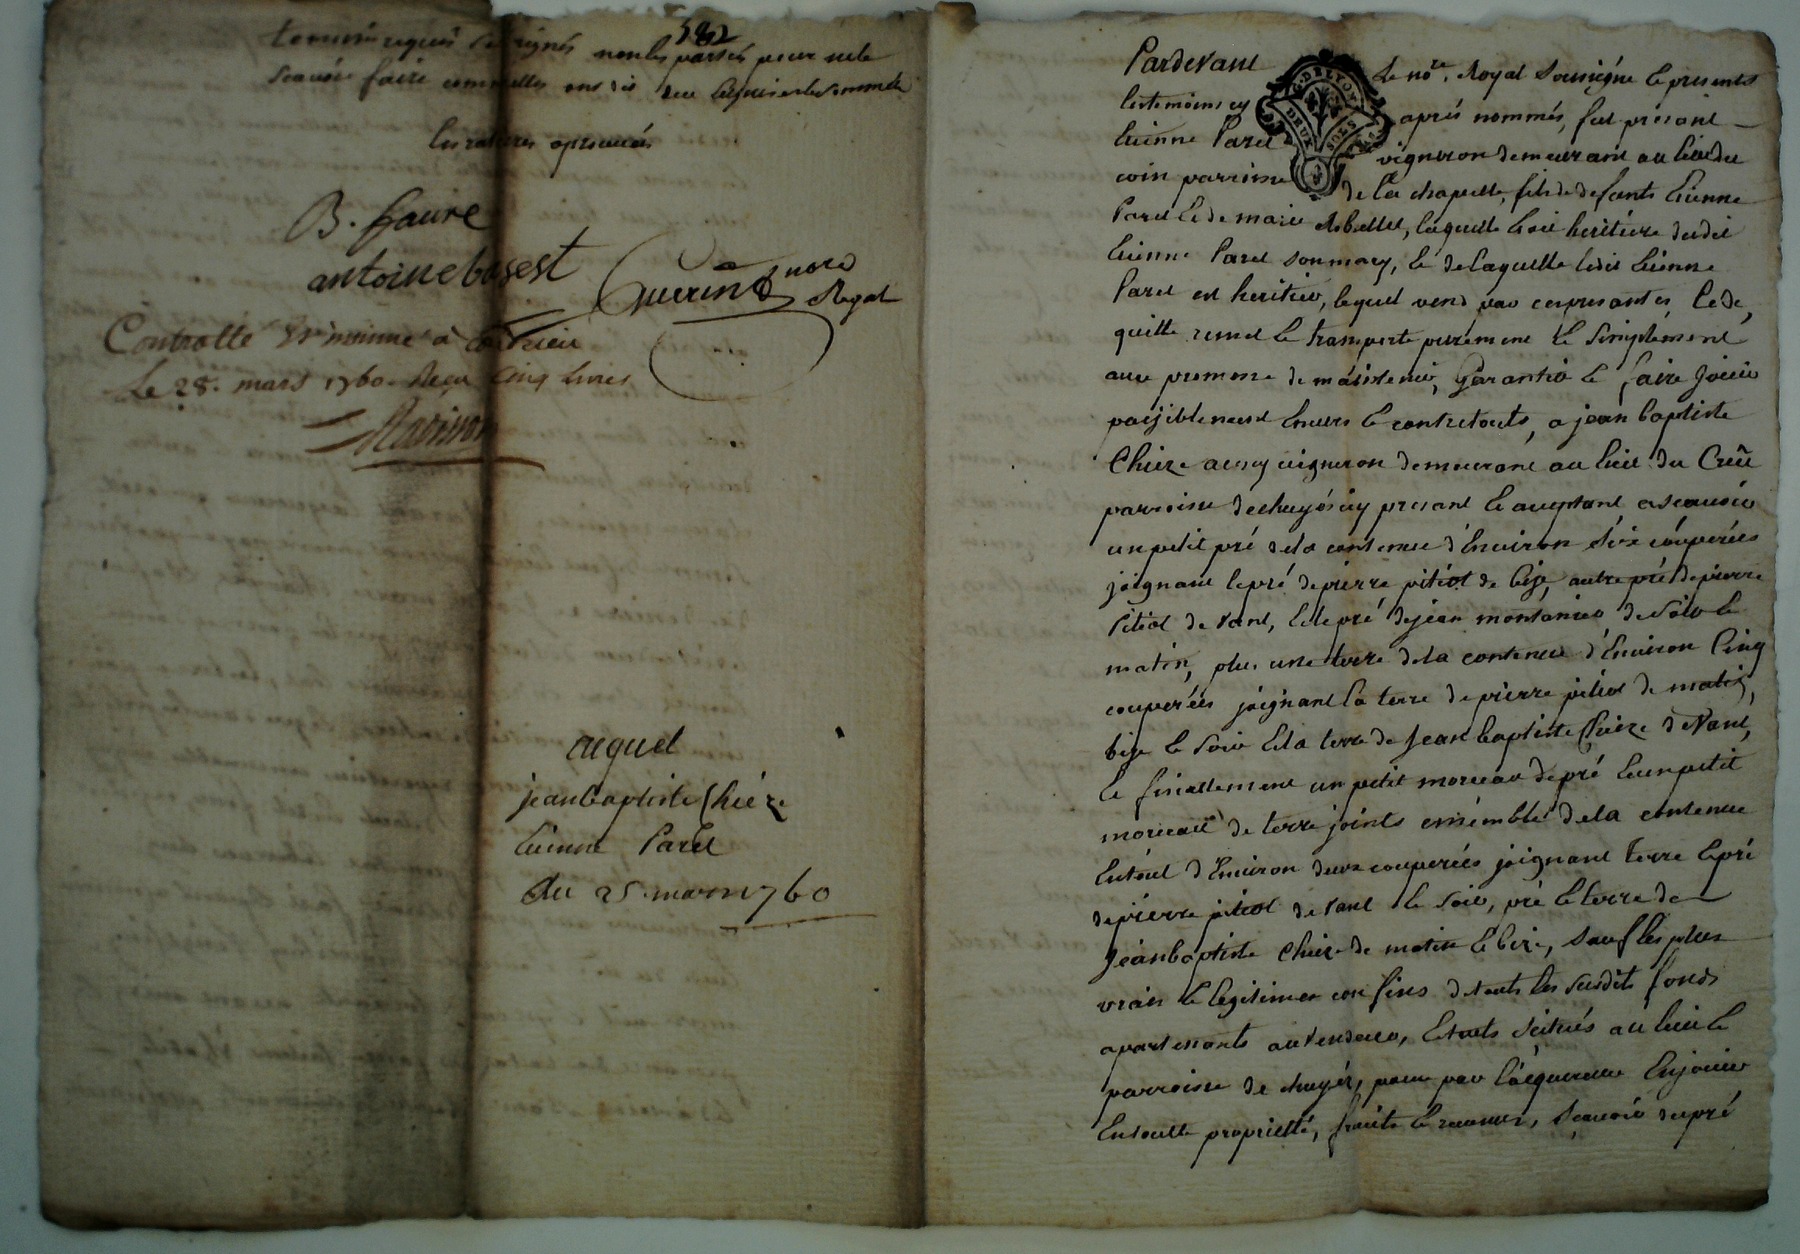 582
temoins requis signés non les parties pour ne le
scavoir faire comme elles ont dit de ce enquises et sommées
les ratures aprouvées
B. faure
antoine bosest
Guerin nore Royal
Controllé et insinué à Condrieu
Le 28. mars 1760. Reçu Cinq livres
Marinon
acquet
jean baptiste Chièze
Etienne Paret
du 25. mars 1760
Pardevant le nore. Royal soussigné et presents
les temoins cy après nommés, fut présent
Etienne Paret vigneron demeurant au lieu du
coin parroisse de la chapelle, fils de defunts Etienne
Paret et de marie Rebattet, laquelle étoit heritière dudit
Etienne Paret son mary, et de laquelle ledit Etienne
Paret est heritier, lequel vend par ces presantes, cede,
quitte remet et transporte purement et simplement
avec promesse de maintenir, Garantir et faire joüir
paisiblement Envers et contre touts, a jean baptiste
Chieze aussy vigneron demeurant au lieu du Creü
parroisse de chuyés icy present et acceptant asscavoir
un petit pré de la contenue d'Environ six couperées
joignant le pré de pierre pitiot de bize, autre pré de pierre
Pitiot de vent, et le pré de jean montanier de soir et
matin, plus une terre de la contenue d'Environ Cinq
couperées joignant la terre de pierre pitiot de matin,
bize et soir et la terre de Jean baptiste Chieze de Vent,
et finallement un petit morceau de pré et un petit
morceau de terre joints ensemble de la contenue
Entout d'Environ deux couperées joignant terre et pré
de pierre pitiot de vent et soir, pré et terre de
Jean baptiste Chieze de matin et bize, sauf les plus
vrais et legitimes confins de touts les susdits fonds
apartenants au vendeur, et touts scitués au lieu et
parroisse de chuyés, pour par l'acquereur En joüir
En toutte proprietté, fruits et revenus, Scavoir du pré